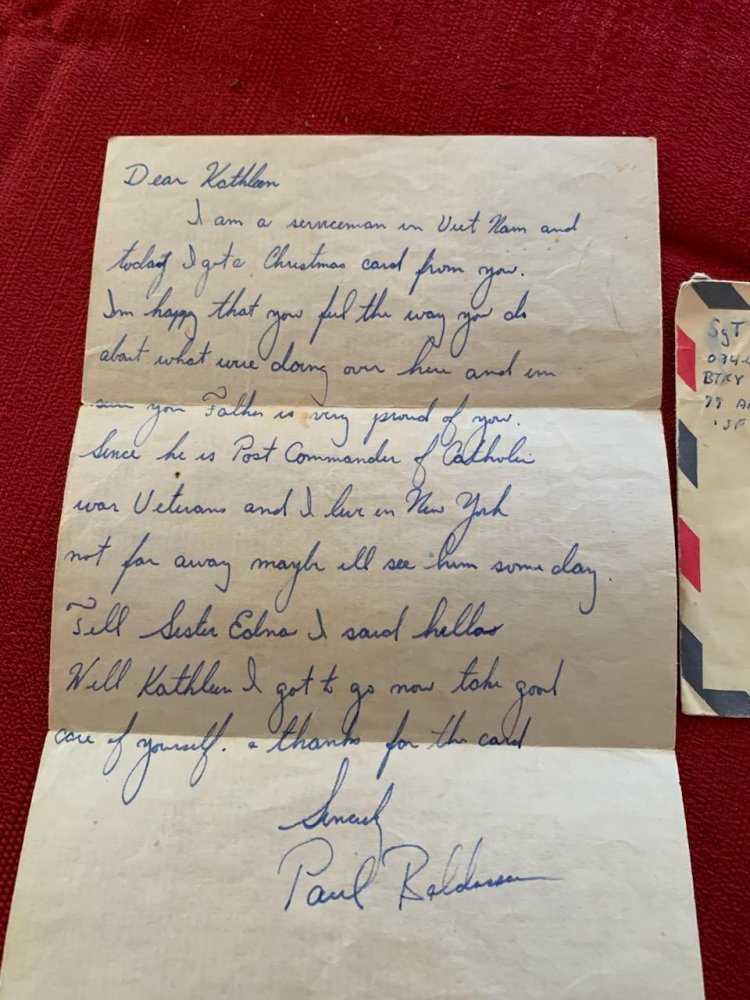 Dear Kathleen
I am a serviceman in Viet Nam and
today I got a Christmas card from you.
Im happy that you feel the way you do
about what were doing over here and im
sure your Father is very proud of you.
Since he is Post Commander of Catholic
war Veterans and I live in New York
not far away maybe ill see him some day.
Tell Sister Edna I said hello
Well Kathleen I got to go now take good
care of yourself. & thanks for the card
Paul
Sgt
BTRY